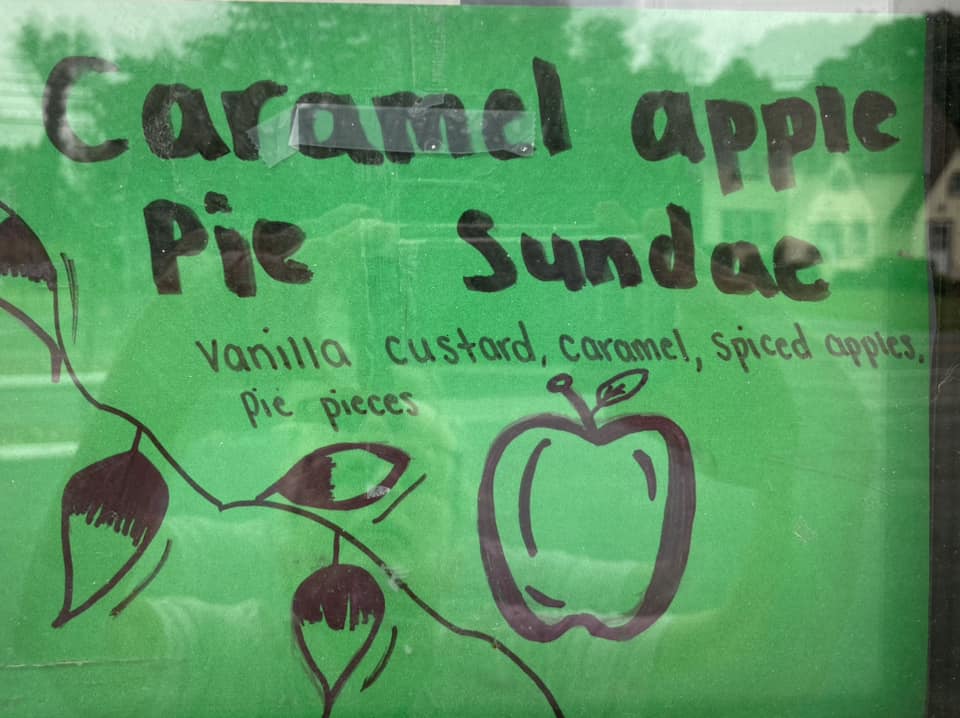 Caramel apple
Pie Sundae
Vanilla custard, caramel, spiced apples,
pie pieces